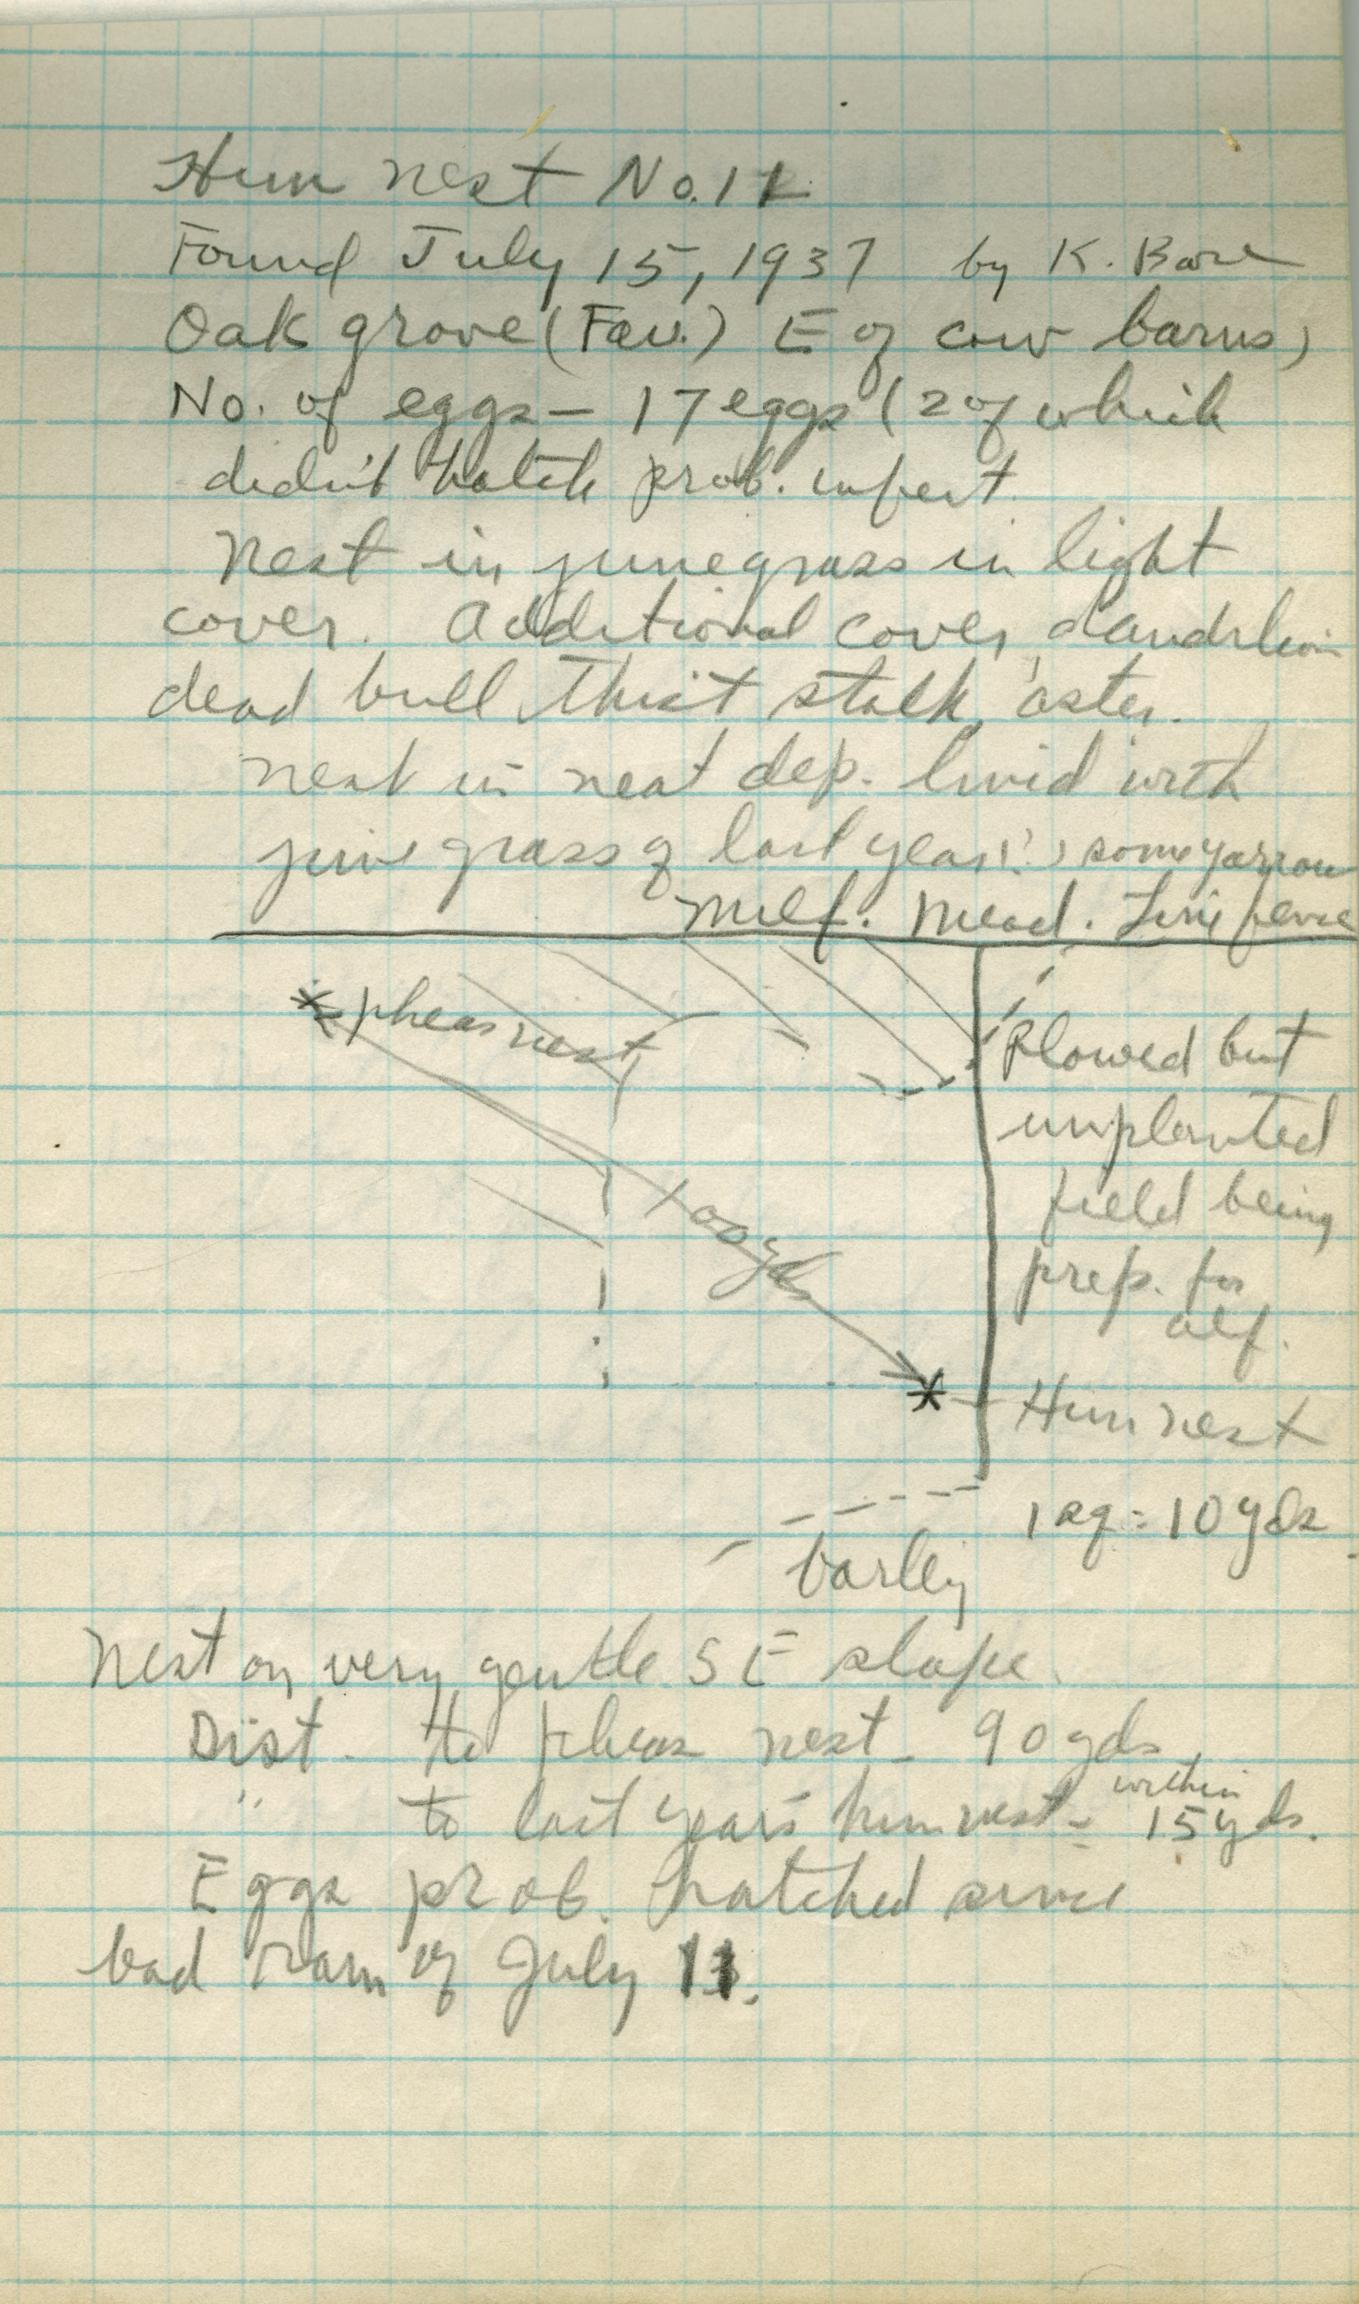 Hun nest No. 11
Found July 15, 1937 by K.
Oak grove (Fav.) E of cow barns)
No. of eggs — 17 eggs (2 of which
didn't hatch prob. infert.
Nest in junegrass in light
cover. Additional cover, dandelion
dead bull thist stalk, aster.
nest in neat dep. lined with
june grass of last year(?), some yarrow
Milf. Mead. Line fence
pheas nest
Plowed but
unplanted
field being
prep. for
alf.
100 yds
Hun nest
1 sq = 10 yds
barley
Nest on very gentle SE slope.
Dist. to pheas nest - 90 yds.
" to last years hun nest - within 15 yds.
Eggs prob. hatched since
bad rain of July 11.